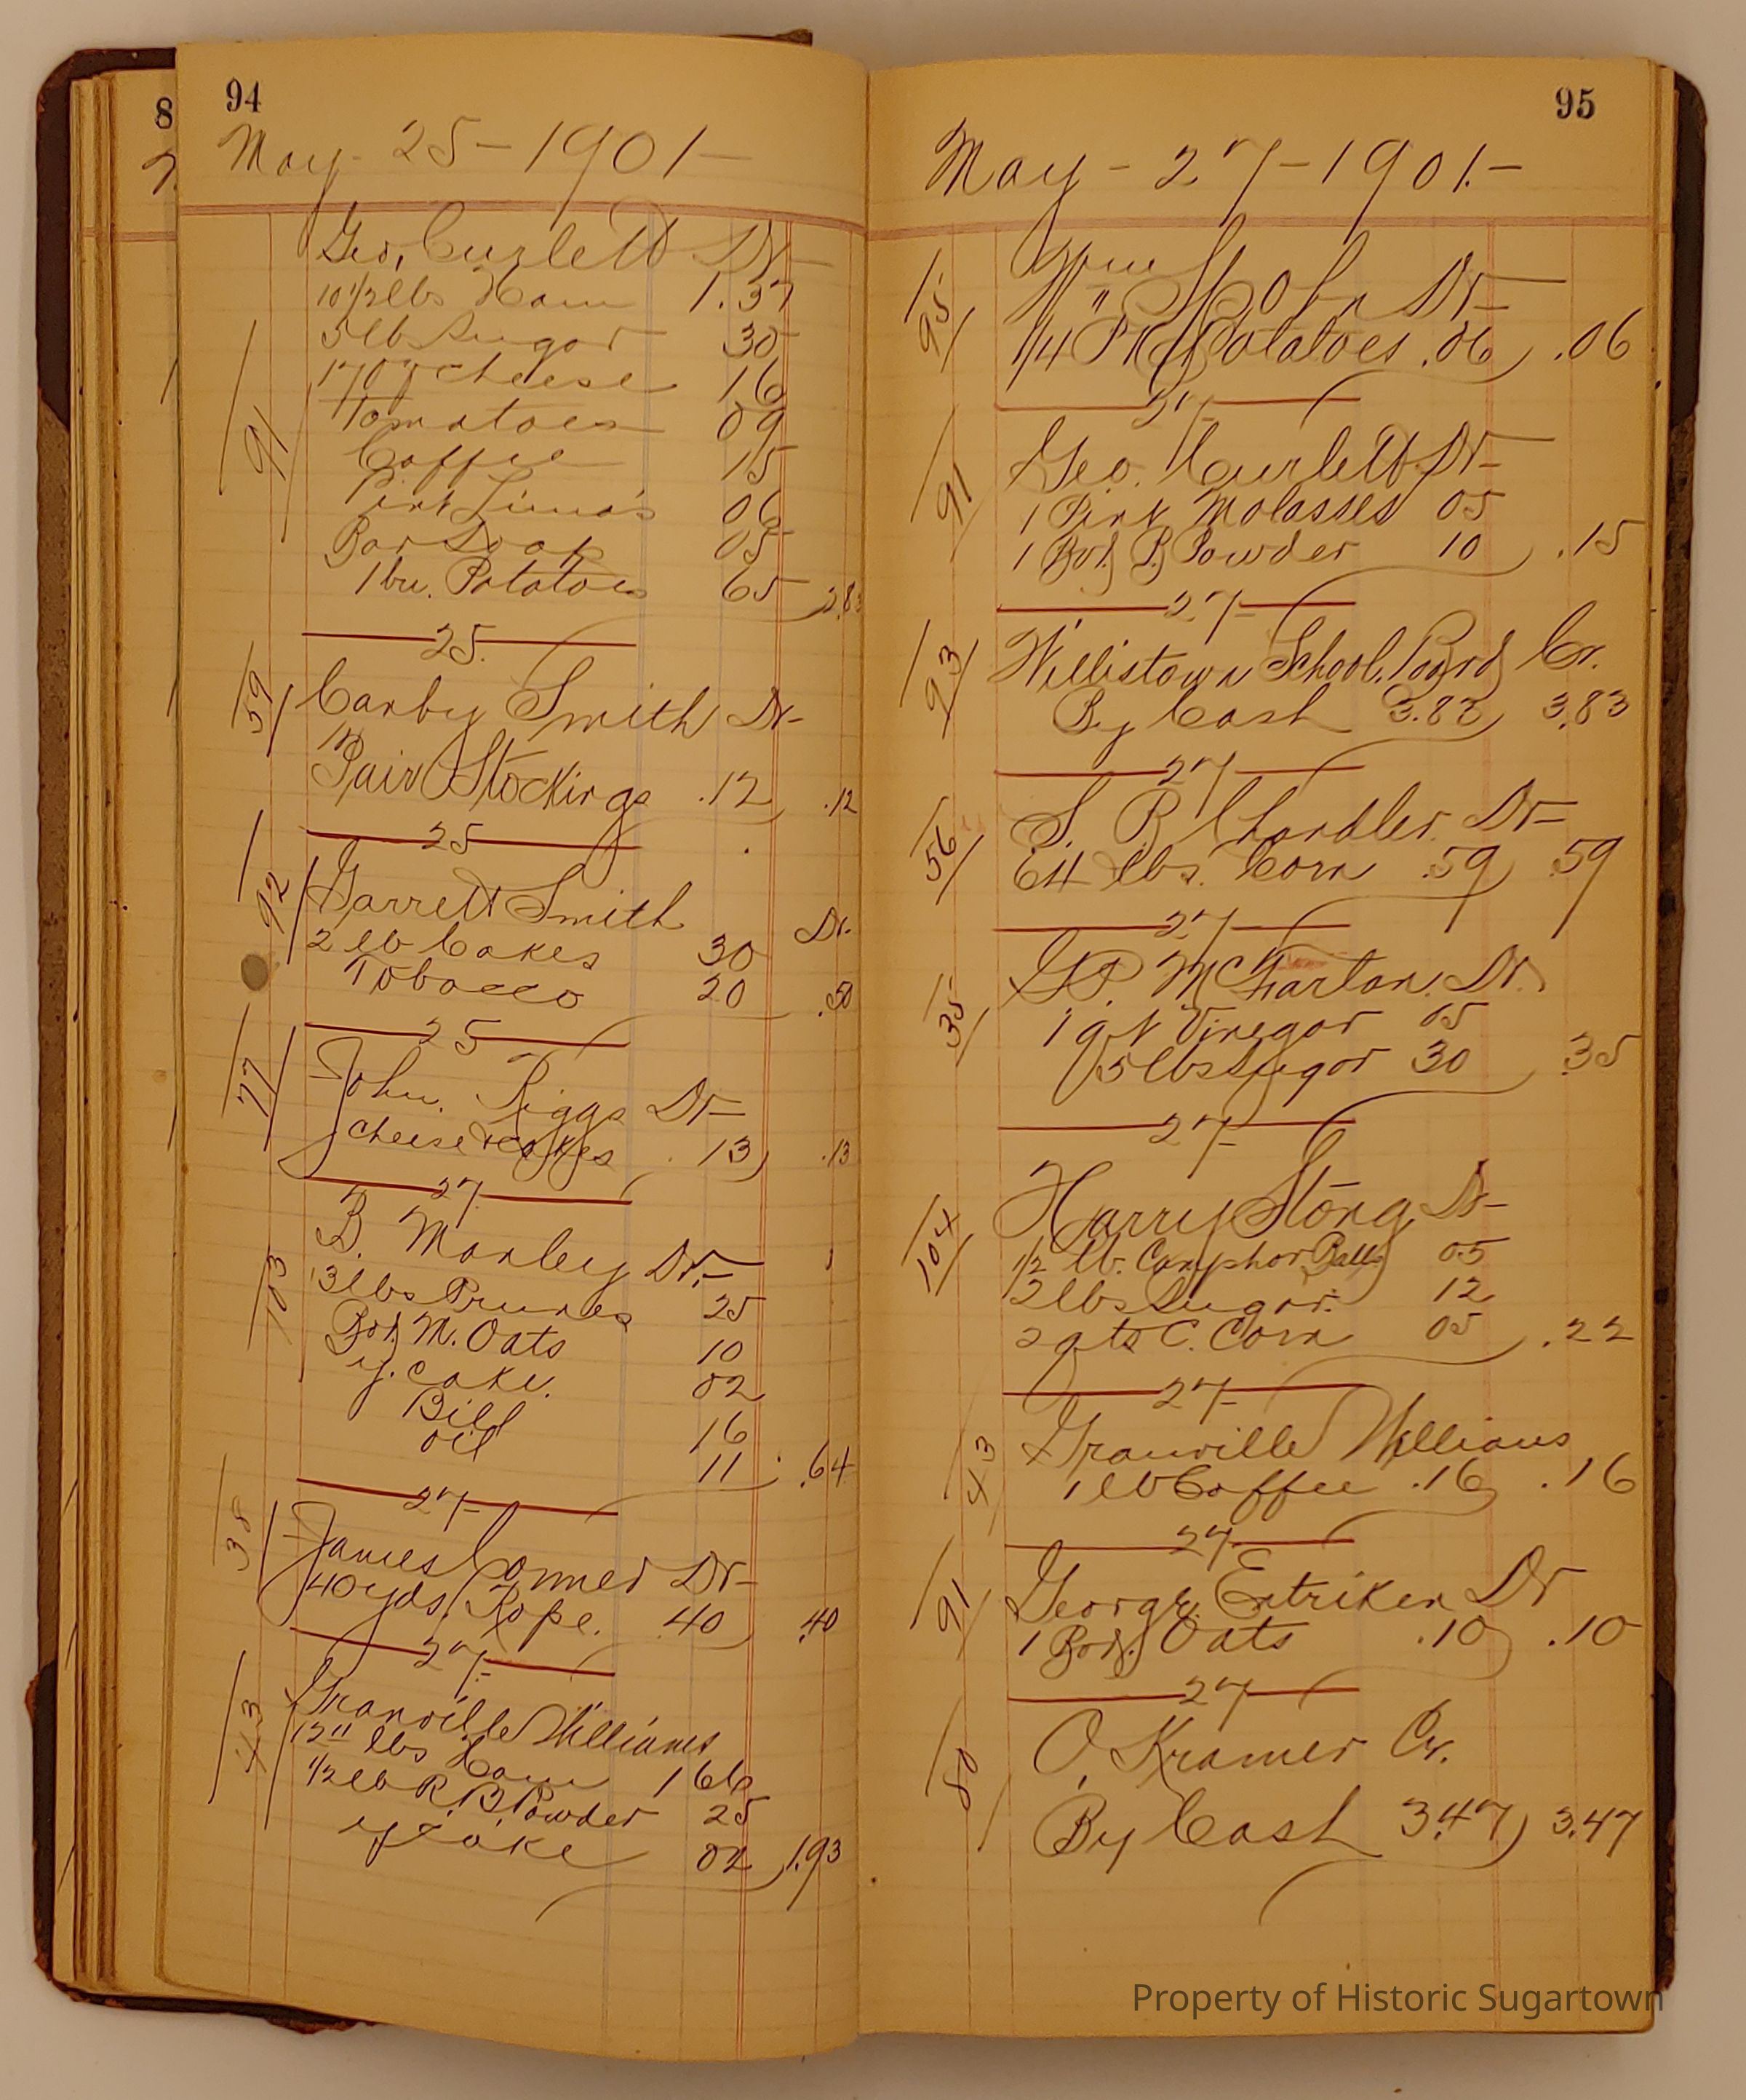 8
94
May - 25 - 1901 -
Geo. Curlett Dr -
10 1/2 lbs Ham 1.37
5 lb Sugar 30
17 oz cheese 16
Tomatoes 09
Coffee 15
Pint Lima's 06
Bar Soap 05
1 bu. Potatoes 65 2.83
91
25.
59
Carby Smith Dr -
Pair Stockings .12 .12
25
92
Garrett Smith Dr.
2 lb Cakes 30
Tobacco 20 .50
25
77
John. Riggs Dr -
Cheese & Cakes .13 .13
27
103
B. Manley Dr. -
3 lbs Prunes 25
Box M. Oats 10
y. cake. 02
Bill 16
oil 11 .64
27 -
38
James Conner Dr -
40 yds. Rope. .40 .40
27 -
43
Granville Williams
12 11 lbs Ham 1 66
1/2 lb R. B. Powder 25
y cake 02 1.93
95
May - 27 - 1901. -
95
Dr -
1/4 PK Potatoes .06 .06
27 -
91
Geo. Curlett Dr -
1 Pint Molasses 05
1 Box B. Powder 10 .15
27 -
93
Willistown School Board Cr.
By Cash 3.83 3.83
27
56
S. B. Chandler. Dr -
64 lbs. Corn .59 .59
27 -
35
Dr.
1 qt Vinegar 05
5 lbs Sugar 30 .35
27 -
104
Harry Stong Dr -
1/2 lb. Camphor Balls 05
2 lbs Sugar. 12
2 qts C. Corn 05 .22
27 -
43
Granville Williams
1 lb Coffee .16 .16
27
91
George Entriken Dr
1 Box Oats .10 .10
27
80
O. Kramer Cr.
By Cash 3.47 3.47
Property of Historic Sugartown